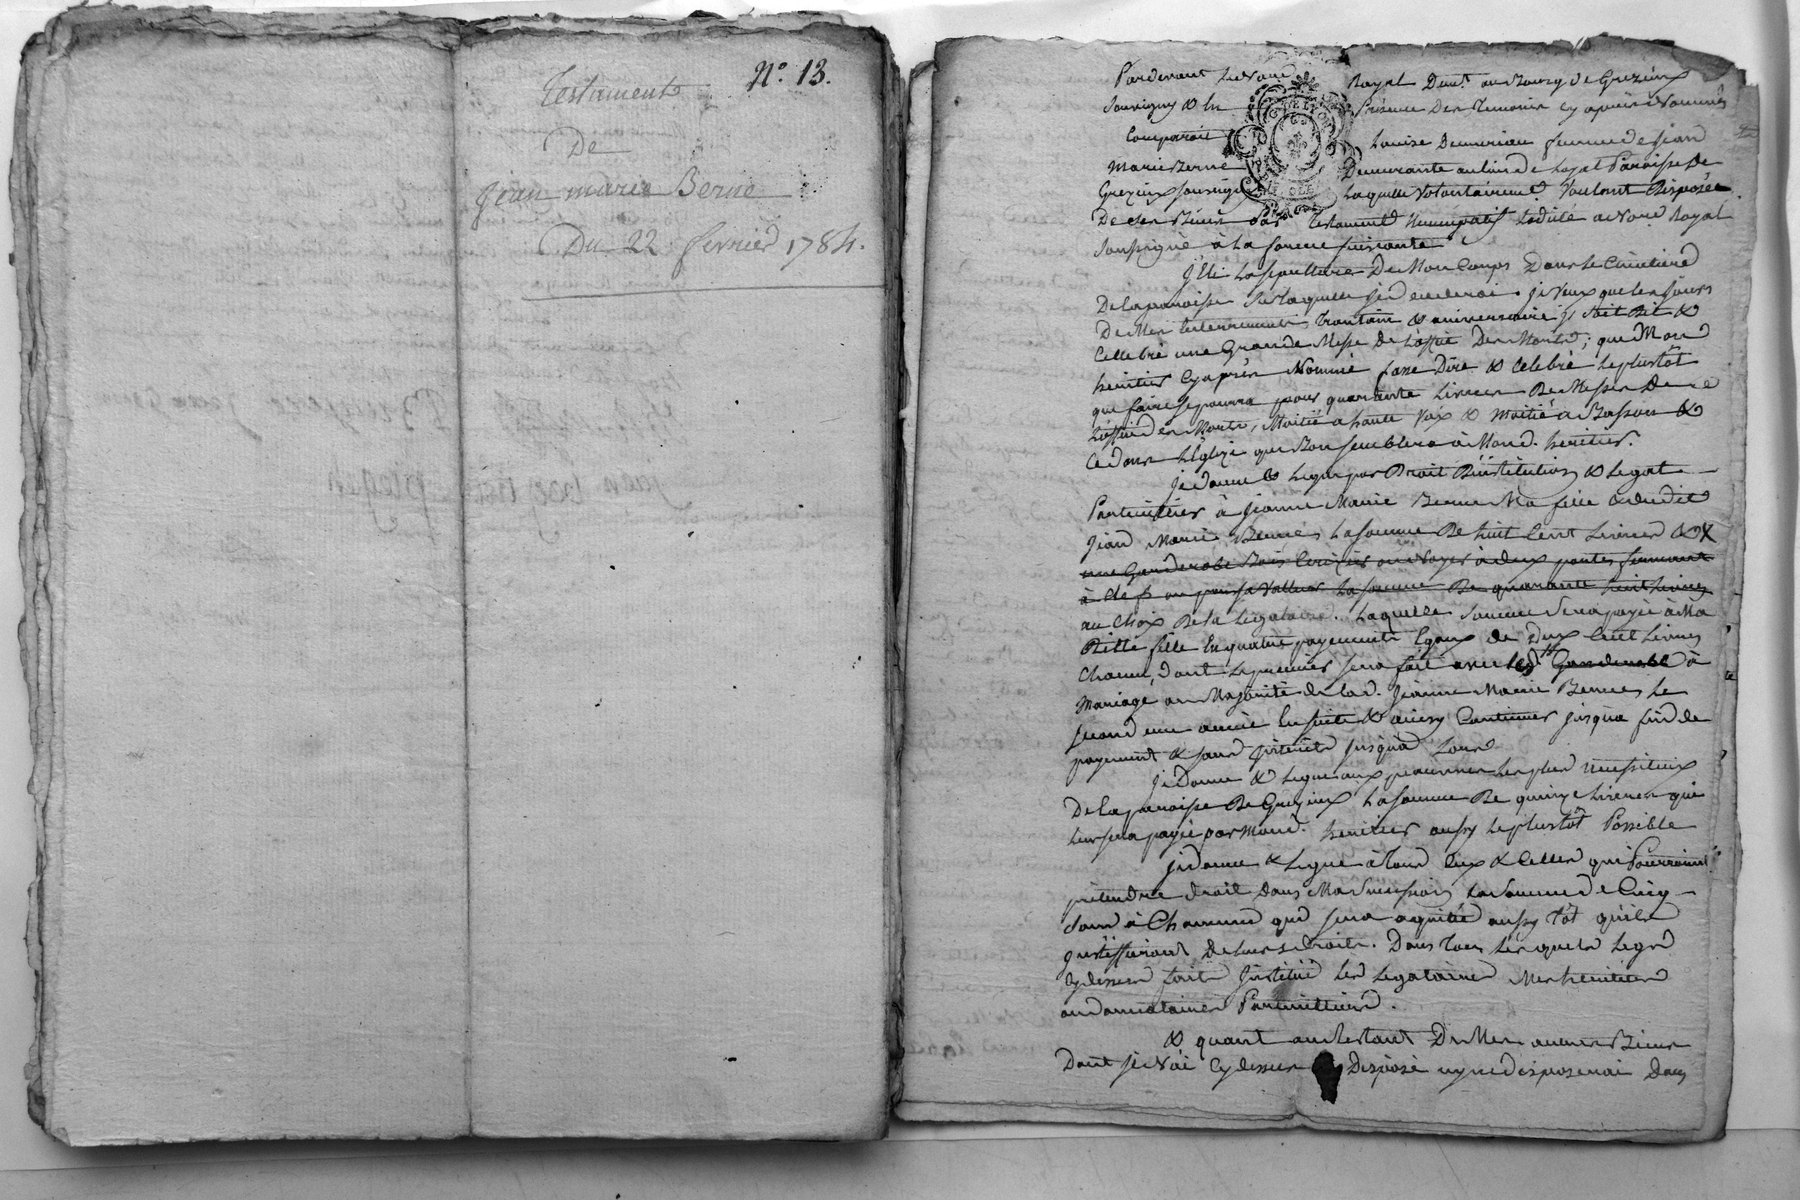 N° 13.
Testament
De
Jean marie Berne
Du 22 fevrier 1784.
Pardevant le No.re Royal Demt. au Bourg de Grezieux
Souvigny & en Présence Des Temoins cy après Nommés
Comparait Louise femme de Jean
Marie Berne Demeurante au lieu de Paroisse De
Grezieux Souvigny Laquelle Volontairement Voulant disposée
De ses Biens Par Testament Nuncupatif No.re Royal
Soussigné à la forme suivante
J'Eli la sepulture De Mon Corps Dans le Cimetiere
De la paroisse sur laquelle je decederai. je Veux que les jours
De Mes Enterrements, trantain & aniversaire il soit Dit &
Cellebré une Grande Messe De l'office Des Morts; que Mon
heritier Cyaprès Nommé fasse Dire & Celebré le plustôt
que faire se pourra pour quarante Livres De Messes De
L'office des Morts, Moitié a haute Voix & Moitié a Basse &
Ce dans l'Eglize que Bon semblera à Mond. heritier.
Je donne & legue par Droit D'institution & legat
Particullier à Jeanne Marie Berne Ma fille & dudit
Jean Marie Berne, la somme De huit Cent Livres & X
une Garderobe Bois Cerizier ou Noyer à deux portes fermant
à Clef ou pour sa Valleur la somme De quarante huit Livres
au Choix De la legataire. Laquelle somme sera payée à Ma
Ditte fille En quatre payements Egaux de Deux Cent Livres
Chacun, dont le premier sera fait avec led. Garderobe à
Mariage ou Majorité de lad. Jeanne Marie Berne, le
second une année En suite & ainsy Continuer jusqu'a fin de
payement & sans interêt jusqu'a Lors
Je Donne & legue aux pauvres les plus necessiteux
De la paroisse De Grezieux la somme De quinze Livres qui
leur sera payée par Mond. heritier aussy le plustôt Possible
Je donne & legue à Tous Ceux & Celles qui Pourroient
prétendre droit Dans Ma Succession la somme de Cinq
sous à Chacun qui sera aquitté aussy tôt qu'ils
justiffieront de leurs droits. Dans tous lesquels legs
Cy dessus faits j'institue les legataires Mes heritiers
ou donataires Particulliers.
& quant au Restant De Mes autres Biens
Dont je N'ai Cy dessus Disposé ny ne disposerai Dans